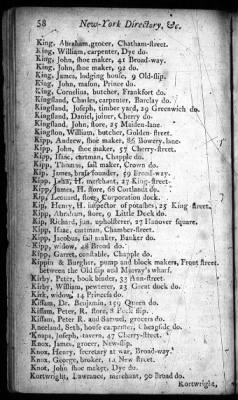 58 New-York Directory, &c.
King, Abraham, grocer, Chatham-street.
King, William, carpenter, Dye do.
King, John, shoe maker, 41 Broad-way.
King, John, shoe maker, 92 do.
King, James, lodging house, 9 Old-slip.
King, John, mason, Prince do.
King, Cornelius, butcher, Frankfort do.
Kingsland, Charles, carpenter, Barclay do.
Kingsland, Joseph, timber yard, 29 Greenwich do.
Kingsland, Daniel, joiner, Cherry do.
Kingsland, John, store, 25 Maiden-lane.
Kingston, William, butcher, Golden-street.
Kipp, Andrew, shoe maker, 86 Bowery lane.
Kipp, John, shoe maker, 57 Cherry-street.
Kipp, Isaac, cartman, Chapple do.
Kipp, Thomas, sail maker, Crown do.
Kip, James, brass founder, 59 Broad-way.
Kipp, John, H. merchant, 27 King-street.
Kipp, James, H. store, 68 Cortlandt do.
Kip, Leonard, store, Corporation dock.
Kip, Henry, H. inspector of potashes, 25 King street.
Kip, Abraham, store, 9 Little Dock do.
Kip, Richard, jun. upholsterer, 27 Hanover square.
Kipp, Isaac, cartman, Chamber-street.
Kipp, Jacobus, sail maker, Banker do.
Kipp, widow, 48 Broad do.
Kipp, Garret, constable, Chapple do.
Kippin & Burgher, pump and block makers, Front street between the Old slip and Murray's wharf.
Kirby, Peter, book binder, 33 Ann-street.
Kirby, William, pewterer, 23 Great dock do.
Kirk, widow, 14 Princess do.
Kissam, Dr. Benjamin, 159 Queen do.
Kissam, Peter, R. store, 8 Peck slip.
Kissam, Peter R. and Samuel, grocers do.
Kneeland, Seth, house carpenter, Cheapside do.
Knapp, Joseph, tavern, 47 Cherry-street.
Knox, James, grocer, New-slip.
Knox, Henry, secretary at war, Broad-way.
Knox, George, broker, 12 New street.
Knot, John, shoe maker, Dye do.
Kortwright, Lawrance, merchant, 90 Broad do.
Kortwright,